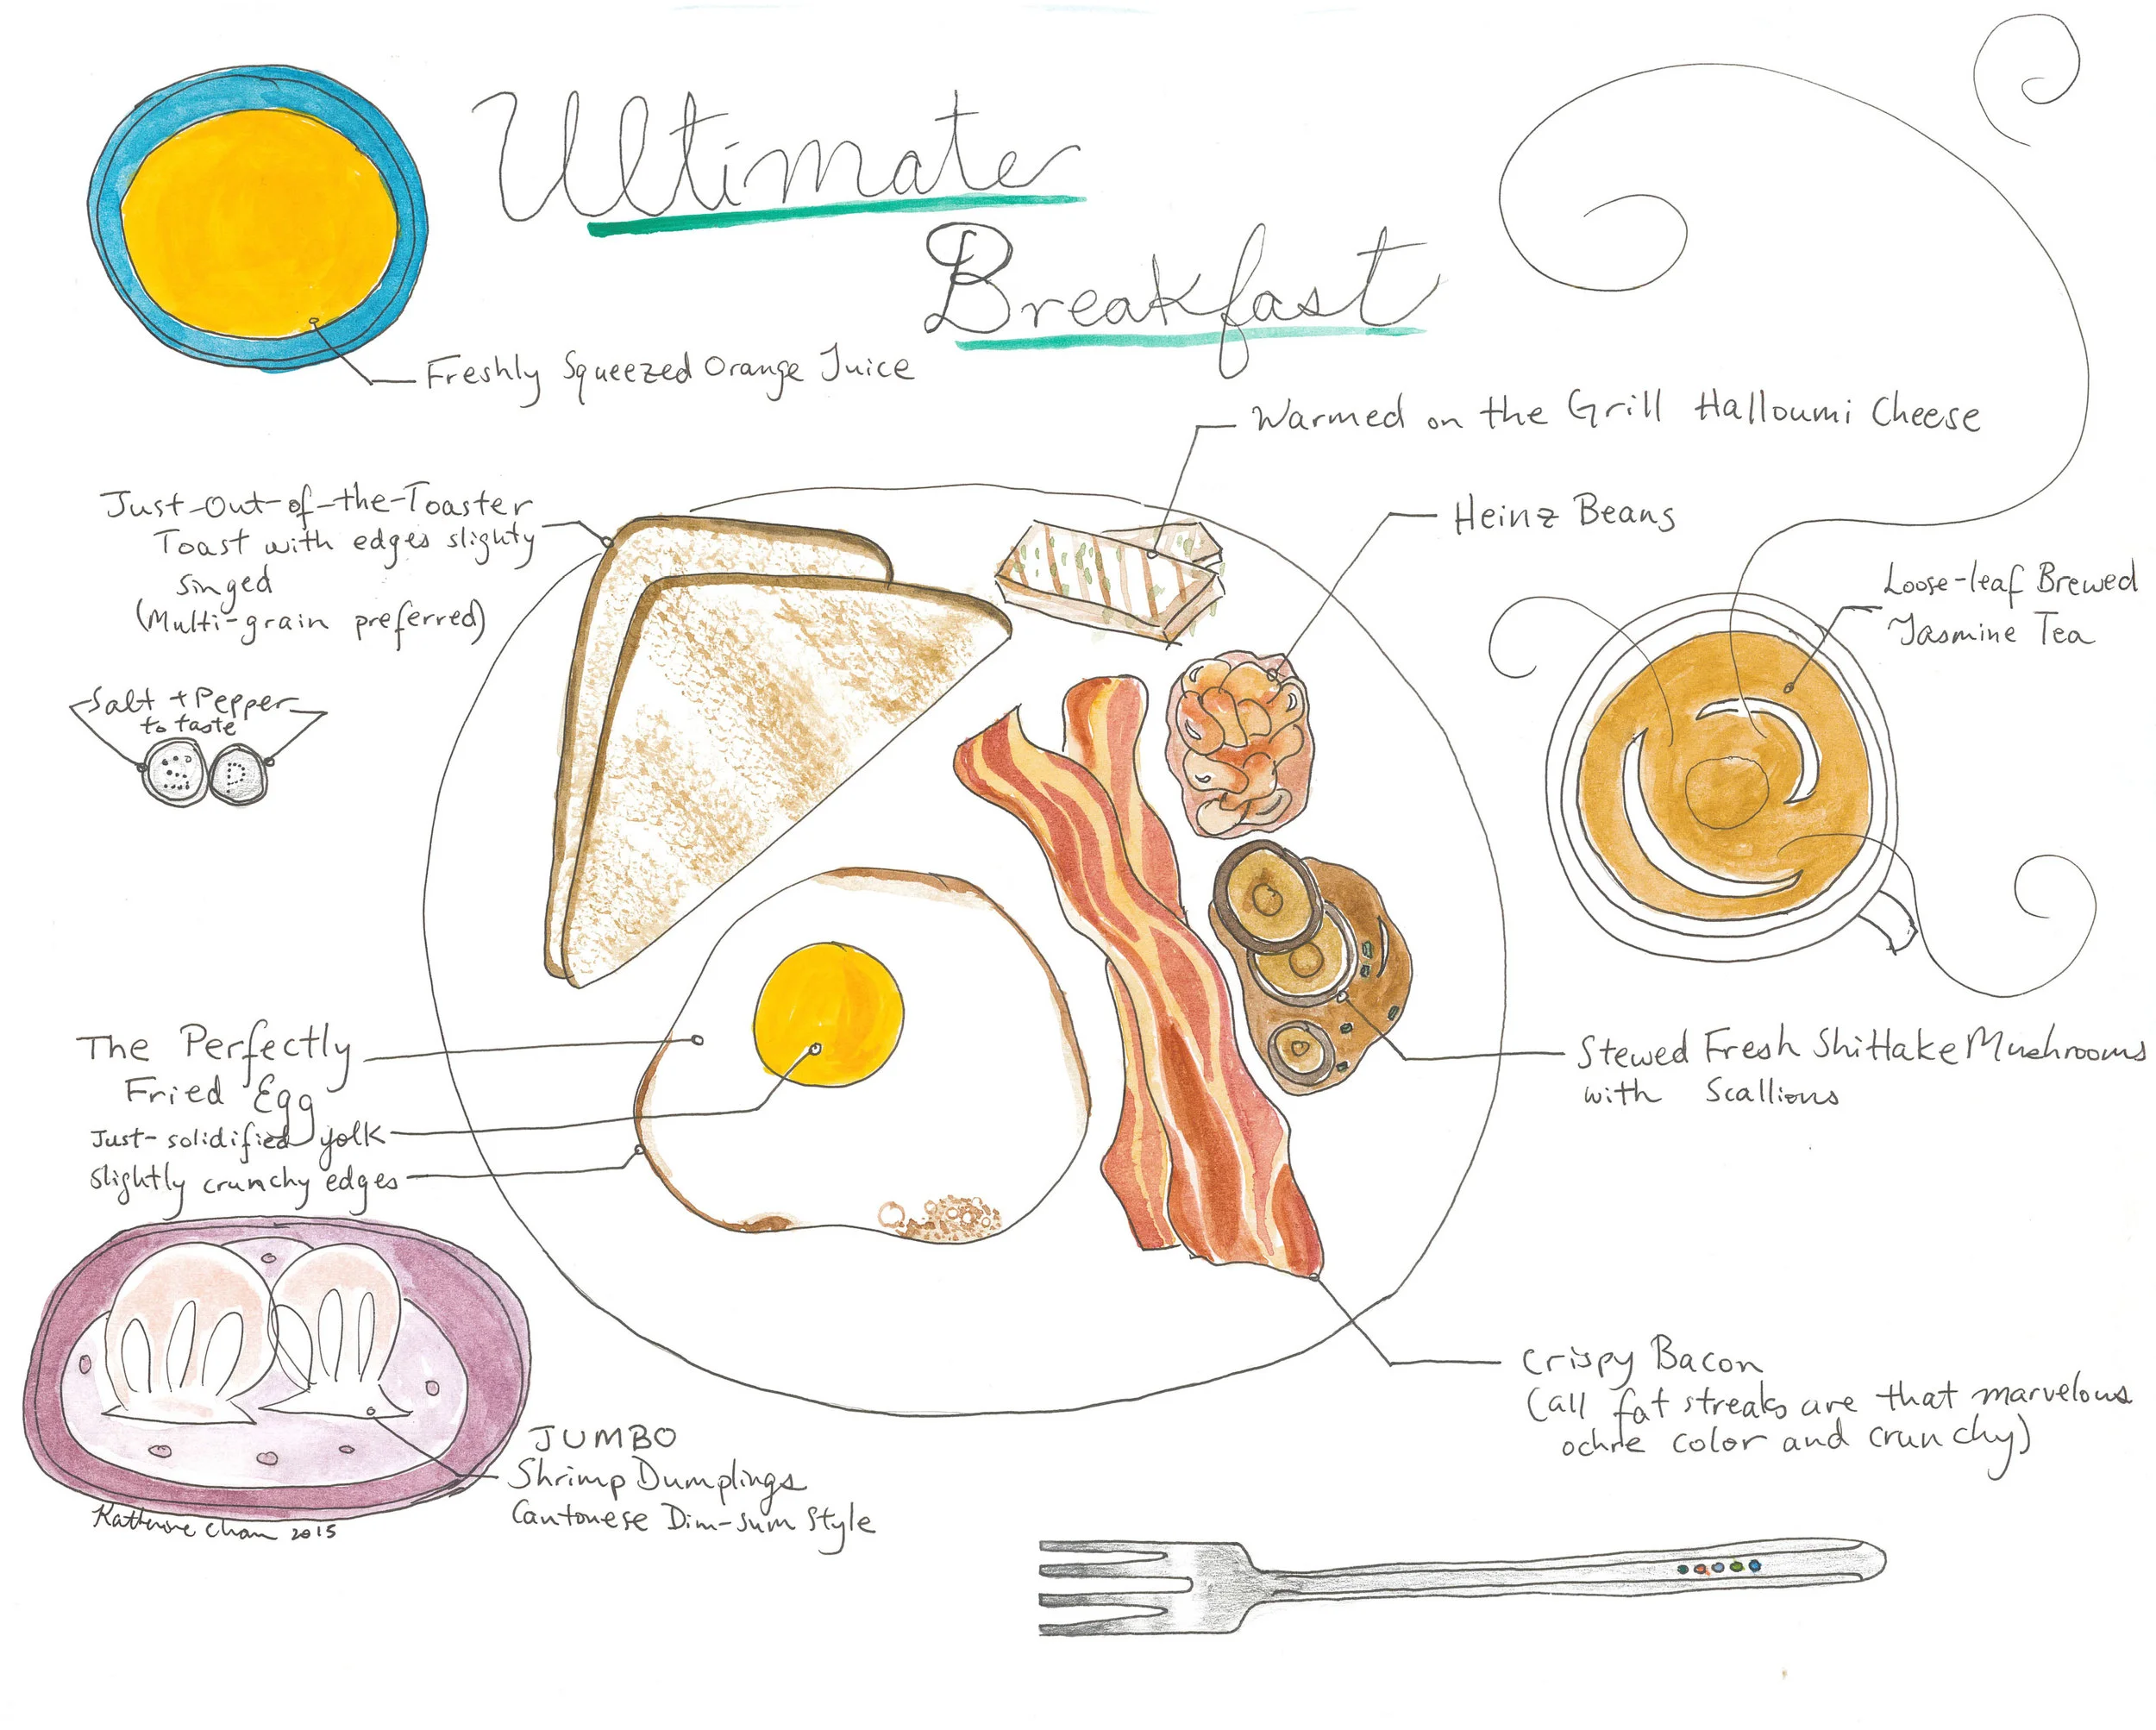 Ultimate
Breakfast
Freshly Squeezed Orange Juice
Warmed on the Grill Halloumi Cheese
Just-Out-of-the-Toaster
Toast with edges slighty
singed
(Multi-grain preferred)
Heinz Beans
Loose-leaf Brewed
Jasmine Tea
Salt + Pepper
to taste
S
P
The Perfectly
Fried Egg
Just-solidified yolk
slightly crunchy edges
Stewed Fresh Shittake Mushrooms
with Scallions
Crispy Bacon
(all fat streaks are that marvelous
ochre color and crunchy)
JUMBO
Shrimp Dumplings
Cantonese Dim-sum Style
Katherine Chan 2015